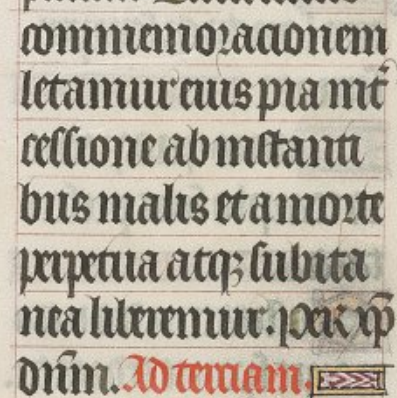 commemoracionem
letamur cuius pia int̾
cessione ab instanti
bus malis et a morte
perpetua atqꝫ subita
nea liberemur. Per xp̄m
dn̄m. Ad terciam.